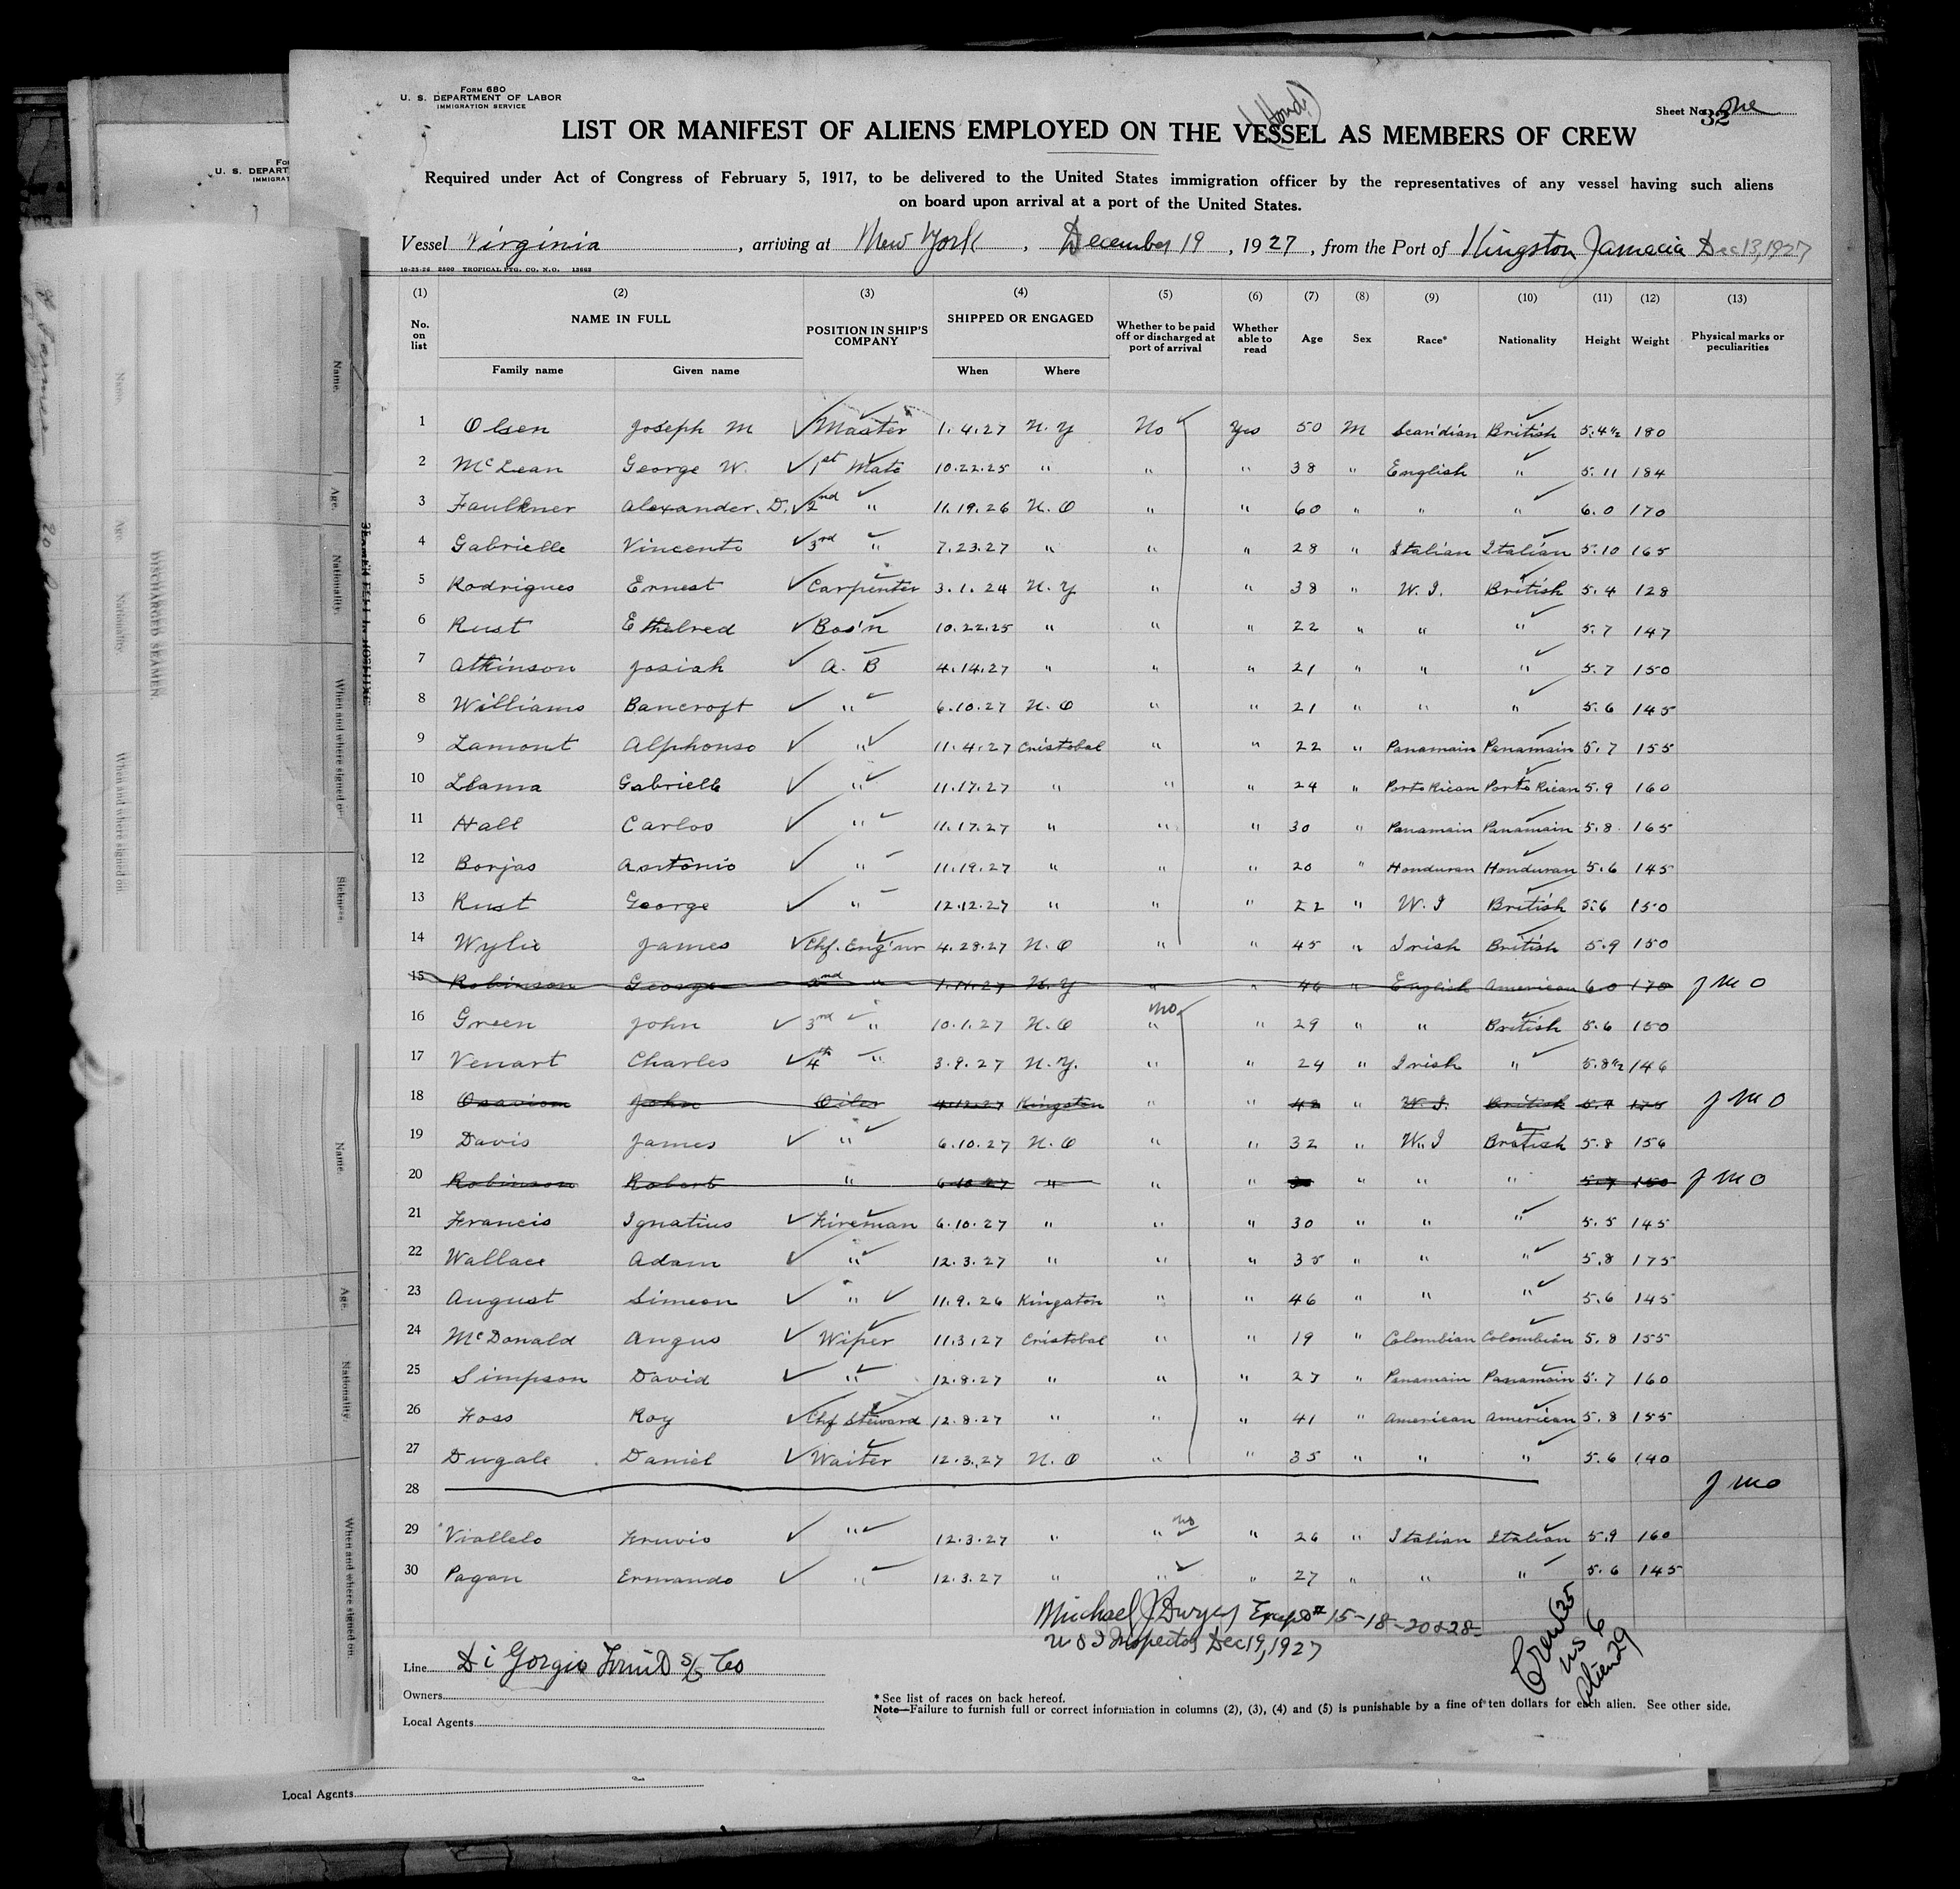 FORM 680
U. S. DEPARTMENT OF LABOR
IMMIGRATION SERVICE
(Hond.)
Sheet No. One
32
LIST OR MANIFEST OF ALIENS EMPLOYED ON THE VESSEL AS MEMBERS OF CREW
Required under Act of Congress of February 5, 1917, to be delivered to the United States immigration officer by the representatives of any vessel having such aliens
on board upon arrival at a port of the United States.
Vessel Virginia, arriving at New York, December 19, 1927, from the Port of Kingston Jamecia Dec 13, 1927
10-25-26 2500 TROPICAL PTG. CO. N.O. 13663
(1) (2) (3) (4) (5) (6) (7) (8) (9) (10) (11) (12) (13)
No. on list NAME IN FULL Family name Given name POSITION IN SHIP'S COMPANY SHIPPED OR ENGAGED When Where Whether to be paid off or discharged at port of arrival Whether able to read Age Sex Race* Nationality Height Weight Physical marks or peculiarities
1 Olsen Joseph M ✓ Master 1.4.27 N.Y No Yes 50 M Scan'dian British 5.4½ 180
2 McLean George W. ✓ 1st Mate 10.22.25 " " " 38 " English " 5.11 184
3 Faulkner Alexander. D. ✓ 2nd " 11.19.26 N.O " " 60 " " " 6.0 170
4 Gabrielle Vincento ✓ 3rd " 7.23.27 " " " 28 " Italian Italian 5.10 165
5 Rodrigues Ernest ✓ Carpenter 3.1.24 N.Y " " 38 " W.I. British 5.4 128
6 Rust Ethelred ✓ Bos'n 10.22.25 " " " 22 " " " 5.7 147
7 Atkinson Josiah ✓ A.B 4.14.27 " " " 21 " " " 5.7 150
8 Williams Bancroft ✓ " 6.10.27 N.O " " 21 " " " 5.6 145
9 Lamont Alphonso ✓ " 11.4.27 Cristobal " " 22 " Panamain Panamain 5.7 155
10 Llama Gabrielle ✓ " 11.17.27 " " " 24 " Porto Rican Porto Rican 5.9 160
11 Hall Carlos ✓ " 11.17.27 " " " 30 " Panamain Panamain 5.8 165
12 Borjas Antonio ✓ " 11.19.27 " " " 20 " Honduran Honduran 5.6 145
13 Rust George ✓ " 12.12.27 " " " 22 " W.I British 5.6 150
14 Wylie James ✓ Chf. Eng'nr 4.28.27 N.O " " 45 " Irish British 5.9 150
15 Robinson George 2nd " 1.11.27 N.Y " " 46 " English American 6.0 170 J M O
16 Green John ✓ 3rd " 10.1.27 N.O no " " 29 " " British 5.6 150
17 Venart Charles ✓ 4th " 3.9.27 N.Y. " " 24 " Irish " 5.8½ 146
18 John Oiler 4.12.27 Kingston " " 48 " W.I. British 5.7 175 J M O
19 Davis James ✓ " 6.10.27 N.O " " 32 " W.I British 5.8 156
20 Robinson Robert " 6.10.27 " " " " " " 5.7 150 J M O
21 Francis Ignatius ✓ Fireman 6.10.27 " " " 30 " " " 5.5 145
22 Wallace Adam ✓ " 12.3.27 " " " 35 " " " 5.8 175
23 August Simeon ✓ " 11.9.26 Kingston " " 46 " " " 5.6 145
24 McDonald Angus ✓ Wiper 11.3.27 Cristobal " " 19 " Colombian Colombian 5.8 155
25 Simpson David ✓ " 12.8.27 " " " 27 " Panamain Panamain 5.7 160
26 Foss Roy ✓ Chf Steward 12.8.27 " " " 41 " American American 5.8 155
27 Dugale Daniel ✓ Waiter 12.3.27 N.O " " 35 " " " 5.6 140
28 J M O
29 Viallelo Fruvio ✓ " 12.3.27 " " no " 26 " Italian Italian 5.9 160
30 Pagan Ermando ✓ " 12.3.27 " " " 27 " " " 5.6 145
Michael J Dwyer Except # 15-18-20&28-
U S I Inspector Dec 19, 1927
Crew 35
US 6
Alien 29
Line Di Giorgio Fruit S/S Co
Owners
Local Agents
* See list of races on back hereof.
Note—Failure to furnish full or correct information in columns (2), (3), (4) and (5) is punishable by a fine of ten dollars for each alien. See other side.
Local Agents
U. S. DEPART
IMMIGRAT
DISCHARGED SEAMEN.
Name.
Age.
Nationality.
When and where signed on.
Sickness.
Name.
Age.
Nationality.
When and where signed on.